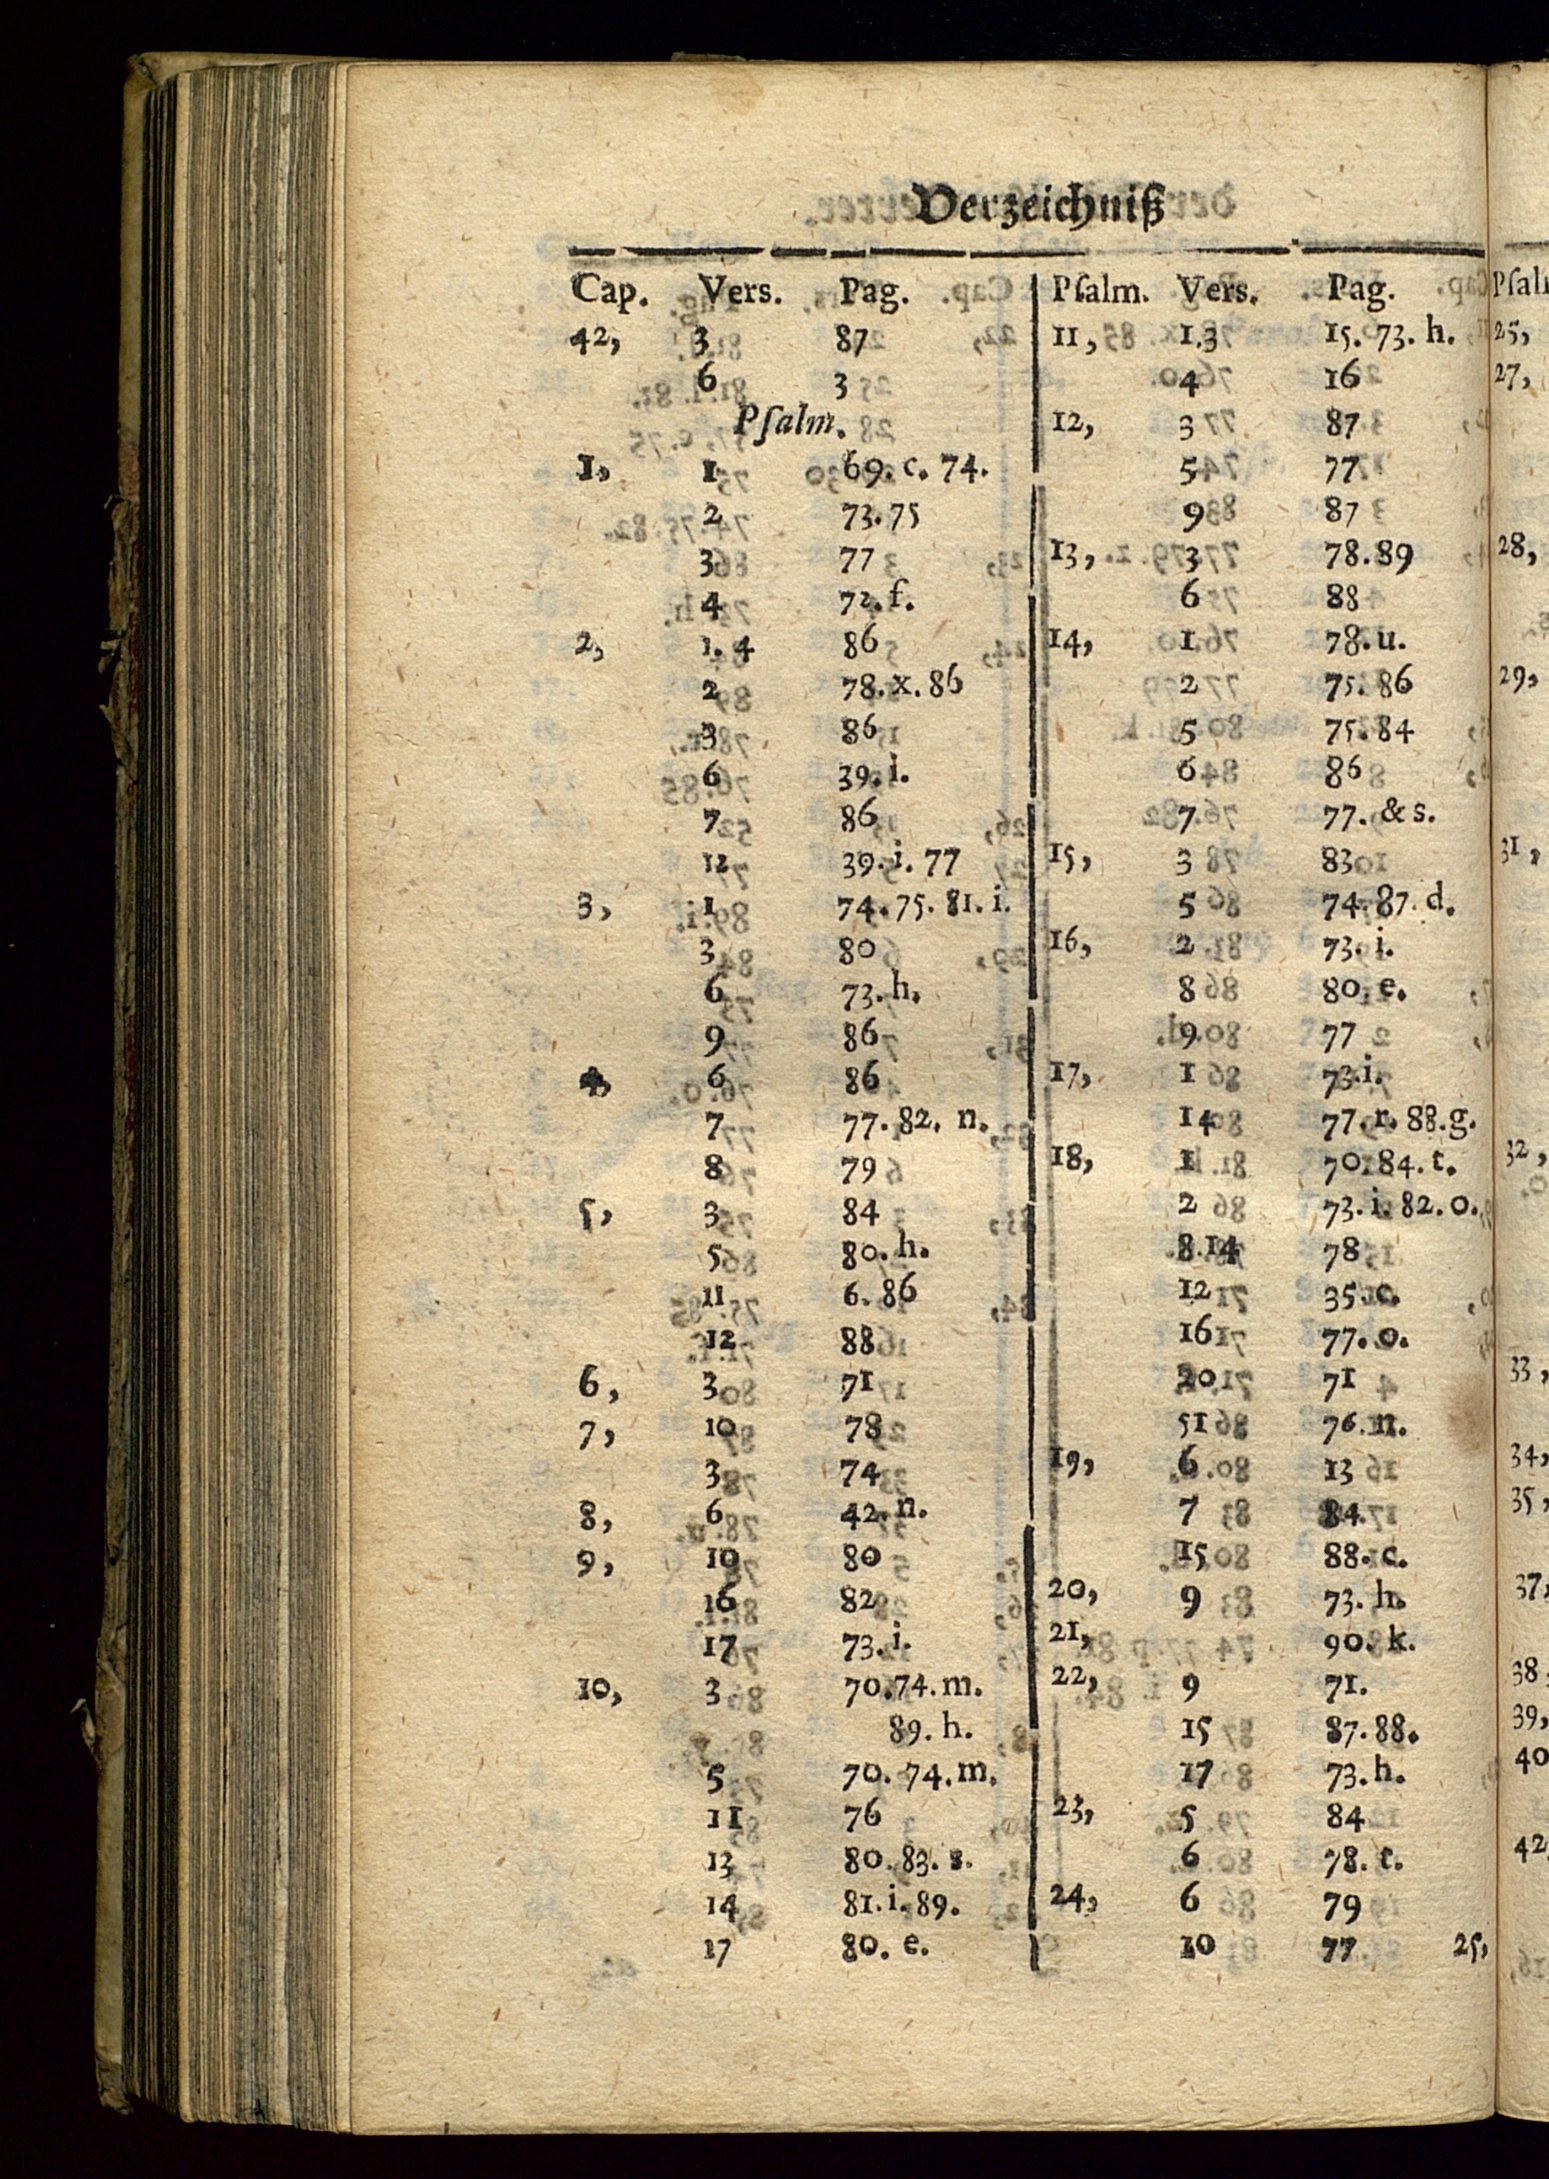 Verzeichniß
Cap. Vers. Pag.
42, 3 87
6 3
Pſalm.
1, 1 69. c. 74.
2 73. 75
3 77
4 72. f.
2, 1. 4 86
2 78. x. 86
3 86
6 39. i.
7 86
12 39. i. 77
3, 1 74. 75. 81. i.
3 80
6 73. h.
9 86
4, 6 86
7 77. 82. n.
8 79
5, 3 84
5 80. h.
11 6. 86
12 88
6, 3 71
7, 10 78
3 74
8, 6 42. n.
9, 10 80
16 82
17 73. i.
10, 3 70. 74. m.
89. h.
5 70. 74. m.
11 76
13 80. 83. s.
14 81. i. 89.
17 80. e.
Pſalm. Vers. Pag.
11, 1. 3 15. 73. h.
4 16
12, 3 87
5 77
9 87
13, 3 78. 89
6 88
14, 1 78. u.
2 75. 86
5 75. 84
6 86
7 77. & s.
15, 3 83
5 74. 87. d.
16, 2 73. i.
8 80. e.
9 77
17, 1 73. i.
14 77. r. 88. g.
18, 1 70. 84. t.
2 73. i. 82. o.
8. 14 78
12 35. c.
16 77. o.
20 71
51 76. n.
19, 6 13
7 84
15 88. c.
20, 9 73. h.
21, 90. k.
22, 9 71.
15 87. 88.
17 73. h.
23, 5 84
6 78. t.
24, 6 79
10 77
25,
25,
27,
28,
29,
31,
32,
33,
34,
35,
37,
38,
39,
40
42,